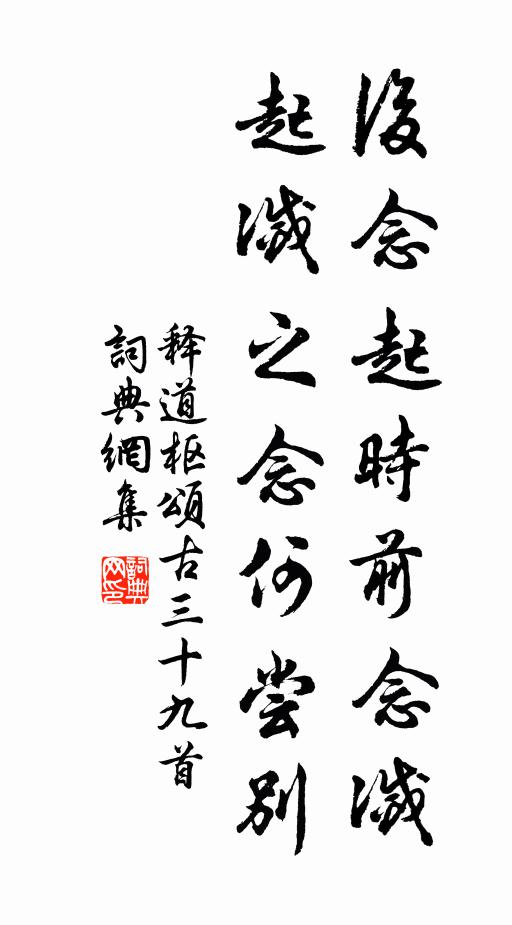 後念起時前念滅
起滅之念何尝別
释道枢頌古三十九首
詞典網集
詞典
网印